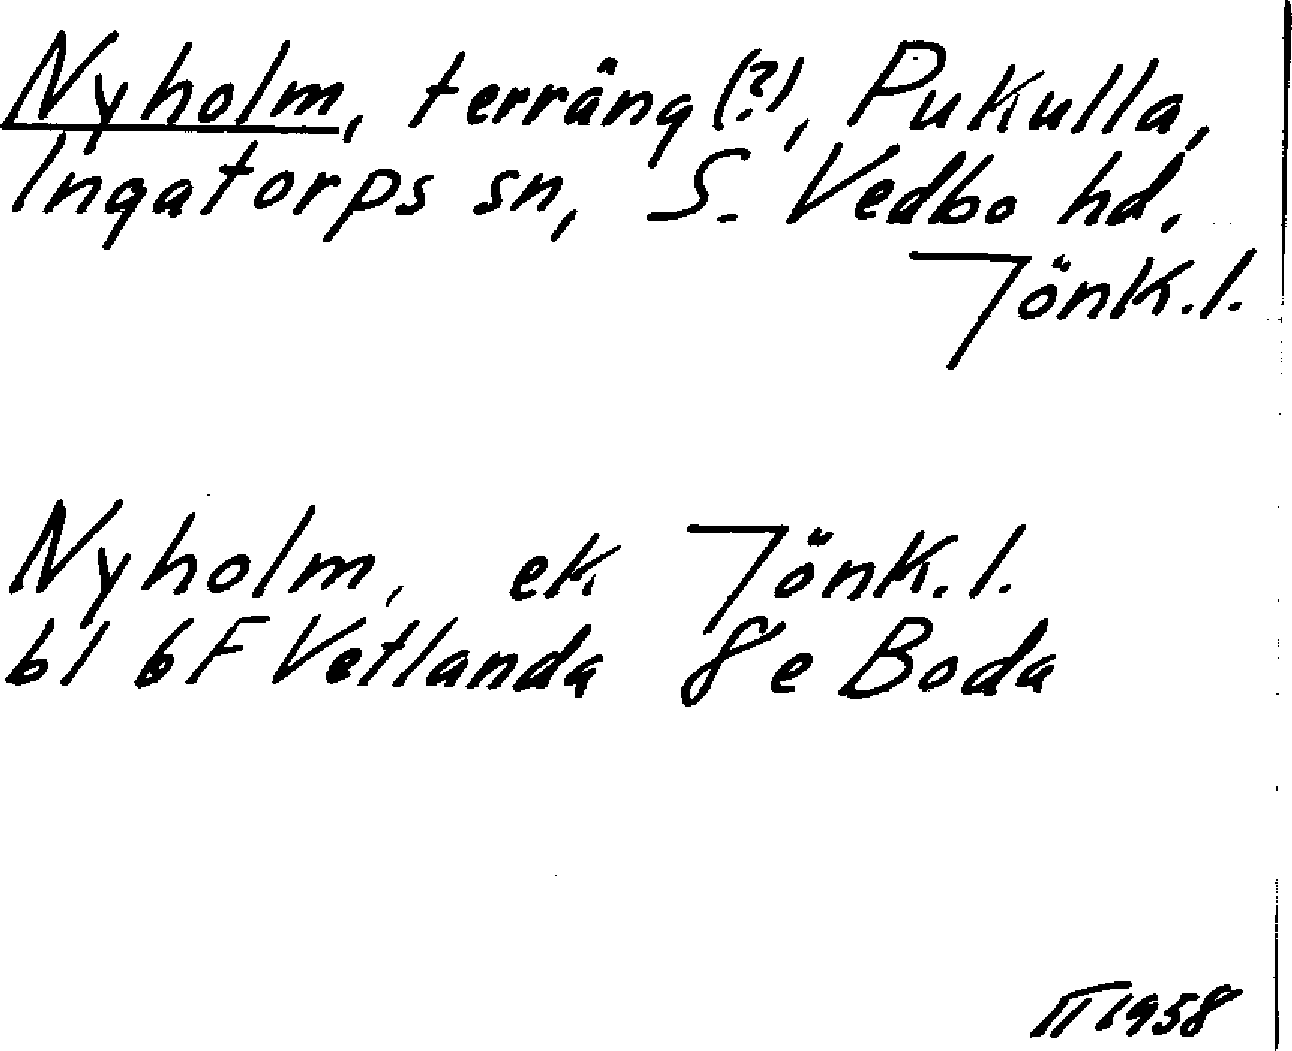 Nyholm, terräng (?), Pukulla,
Ingatorps sn, S. Vedbo hd.
Jönk.l.
Nyholm, ek Jönk.l.
bl 6F Vetlanda 8e Boda
II 1958